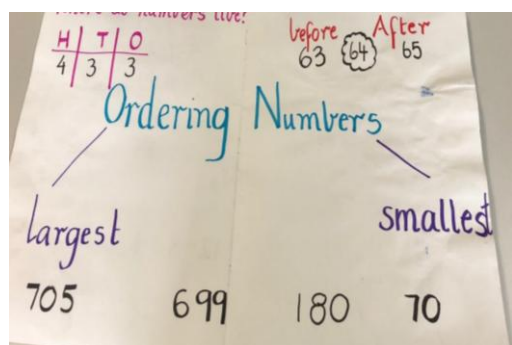 numbers live?
H T O
4 3 3
before After
63 64 65
Ordering Numbers
largest smallest
705 699 180 70